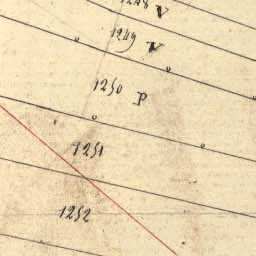 1248 V
1249 V
1250 P
1251
1252